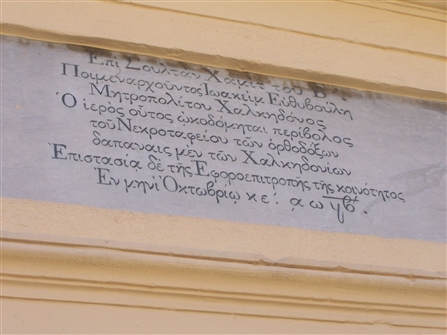 Ἐπὶ Σουλτὰν Χαμὶτ τοῦ Β΄
Ποιμεναρχοῦντος Ἰωακεὶμ Εὐθυβούλη
Μητροπολίτου Χαλκηδόνος
Ὁ ἱερὸς οὗτος ᾠκοδόμηται περίβολος
τοῦ Νεκροταφείου τῶν ὀρθοδόξων
δαπάναις μὲν τῶν Χαλκηδονίων
Ἐπιστασίᾳ δὲ τῆς Ἐφοροεπιτροπῆς τῆς κοινότητος
Ἐν μηνὶ Ὀκτωβρίῳ κε΄. α ω